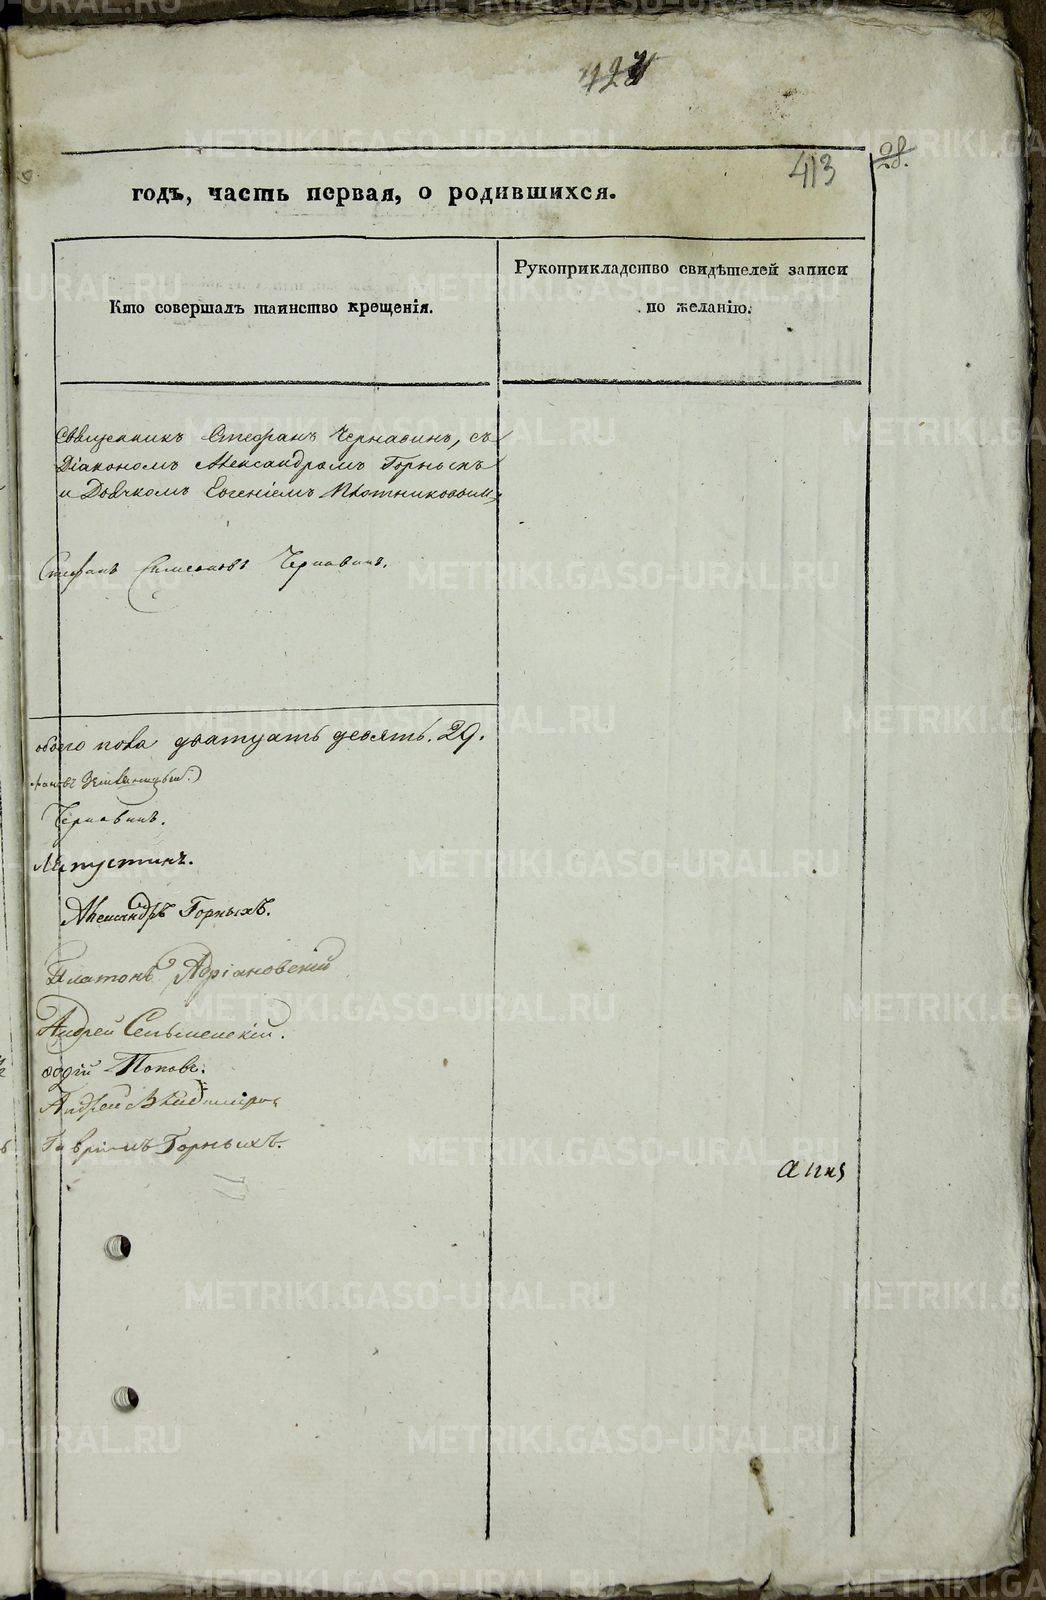 413
28.
годъ, часть первая, о родившихся.
Кто совершалъ таинство крещенія.
Рукоприкладство свидѣтелей записи
по желанію.
Священникъ Стефанъ Чернавинъ, съ
Діакономъ Александромъ Горныхъ
и Дьячкомъ Евгеніемъ Плотниковым
Стефанъ Симеоновъ Чернавинъ.
обоего пола дватцать девять. 29.
Чернавинъ.
Лапустинъ.
Александръ Горныхъ.
Платонъ Адріановскій
Андрей Сельменскій.
Поповъ.
Андрей
Горныхъ.
METRIKI.GASO-URAL.RU